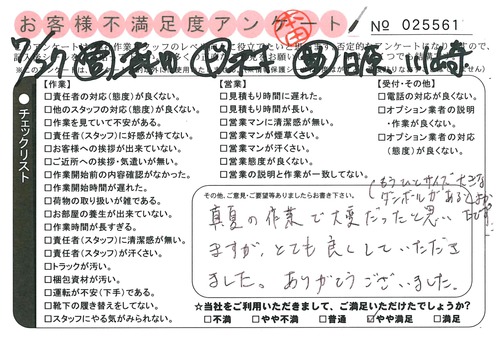 お客様不満足度アンケート
No 025561
チェックリスト
【作業】
□責任者の対応(態度)が良くない。
□他のスタッフの対応(態度)が良くない。
□作業を見ていて不安がある。
□責任者(スタッフ)に好感が持てない。
□お客様への挨拶が出来ていない。
□ご近所への挨拶・気遣いが無い。
□作業開始前の内容確認がなかった。
□作業開始時間が遅れた。
□荷物の取り扱いが雑である。
□お部屋の養生が出来ていない。
□作業時間が長すぎる。
□責任者(スタッフ)に清潔感が無い。
□責任者(スタッフ)が汗くさい。
□トラックが汚い。
□梱包資材が汚い。
□運転が不安(下手)である。
□靴下の履き替えをしてない。
□スタッフにやる気がみられない。
【営業】
□見積もり時間に遅れた。
□見積もり時間が長い。
□営業マンに清潔感が無い。
□営業マンが煙草くさい。
□営業マンが汗くさい。
□営業態度が良くない。
□営業の説明と作業が一致してない。
【受付・その他】
□電話の対応が良くない。
□オプション業者の説明
・作業が良くない。
□オプション業者の対応
(態度)が良くない。
その他、ご意見・ご要望等ありましたらお書き下さい。
(もうひとサイズ大きな
ダンボールがあると
真夏の作業で大変だったと思い
ますが、とても良くしていただき
ました。ありがとうございました。
☆当社をご利用いただきまして、ご満足いただけたでしょうか?
□不満 □やや不満 □普通 ☑やや満足 □満足